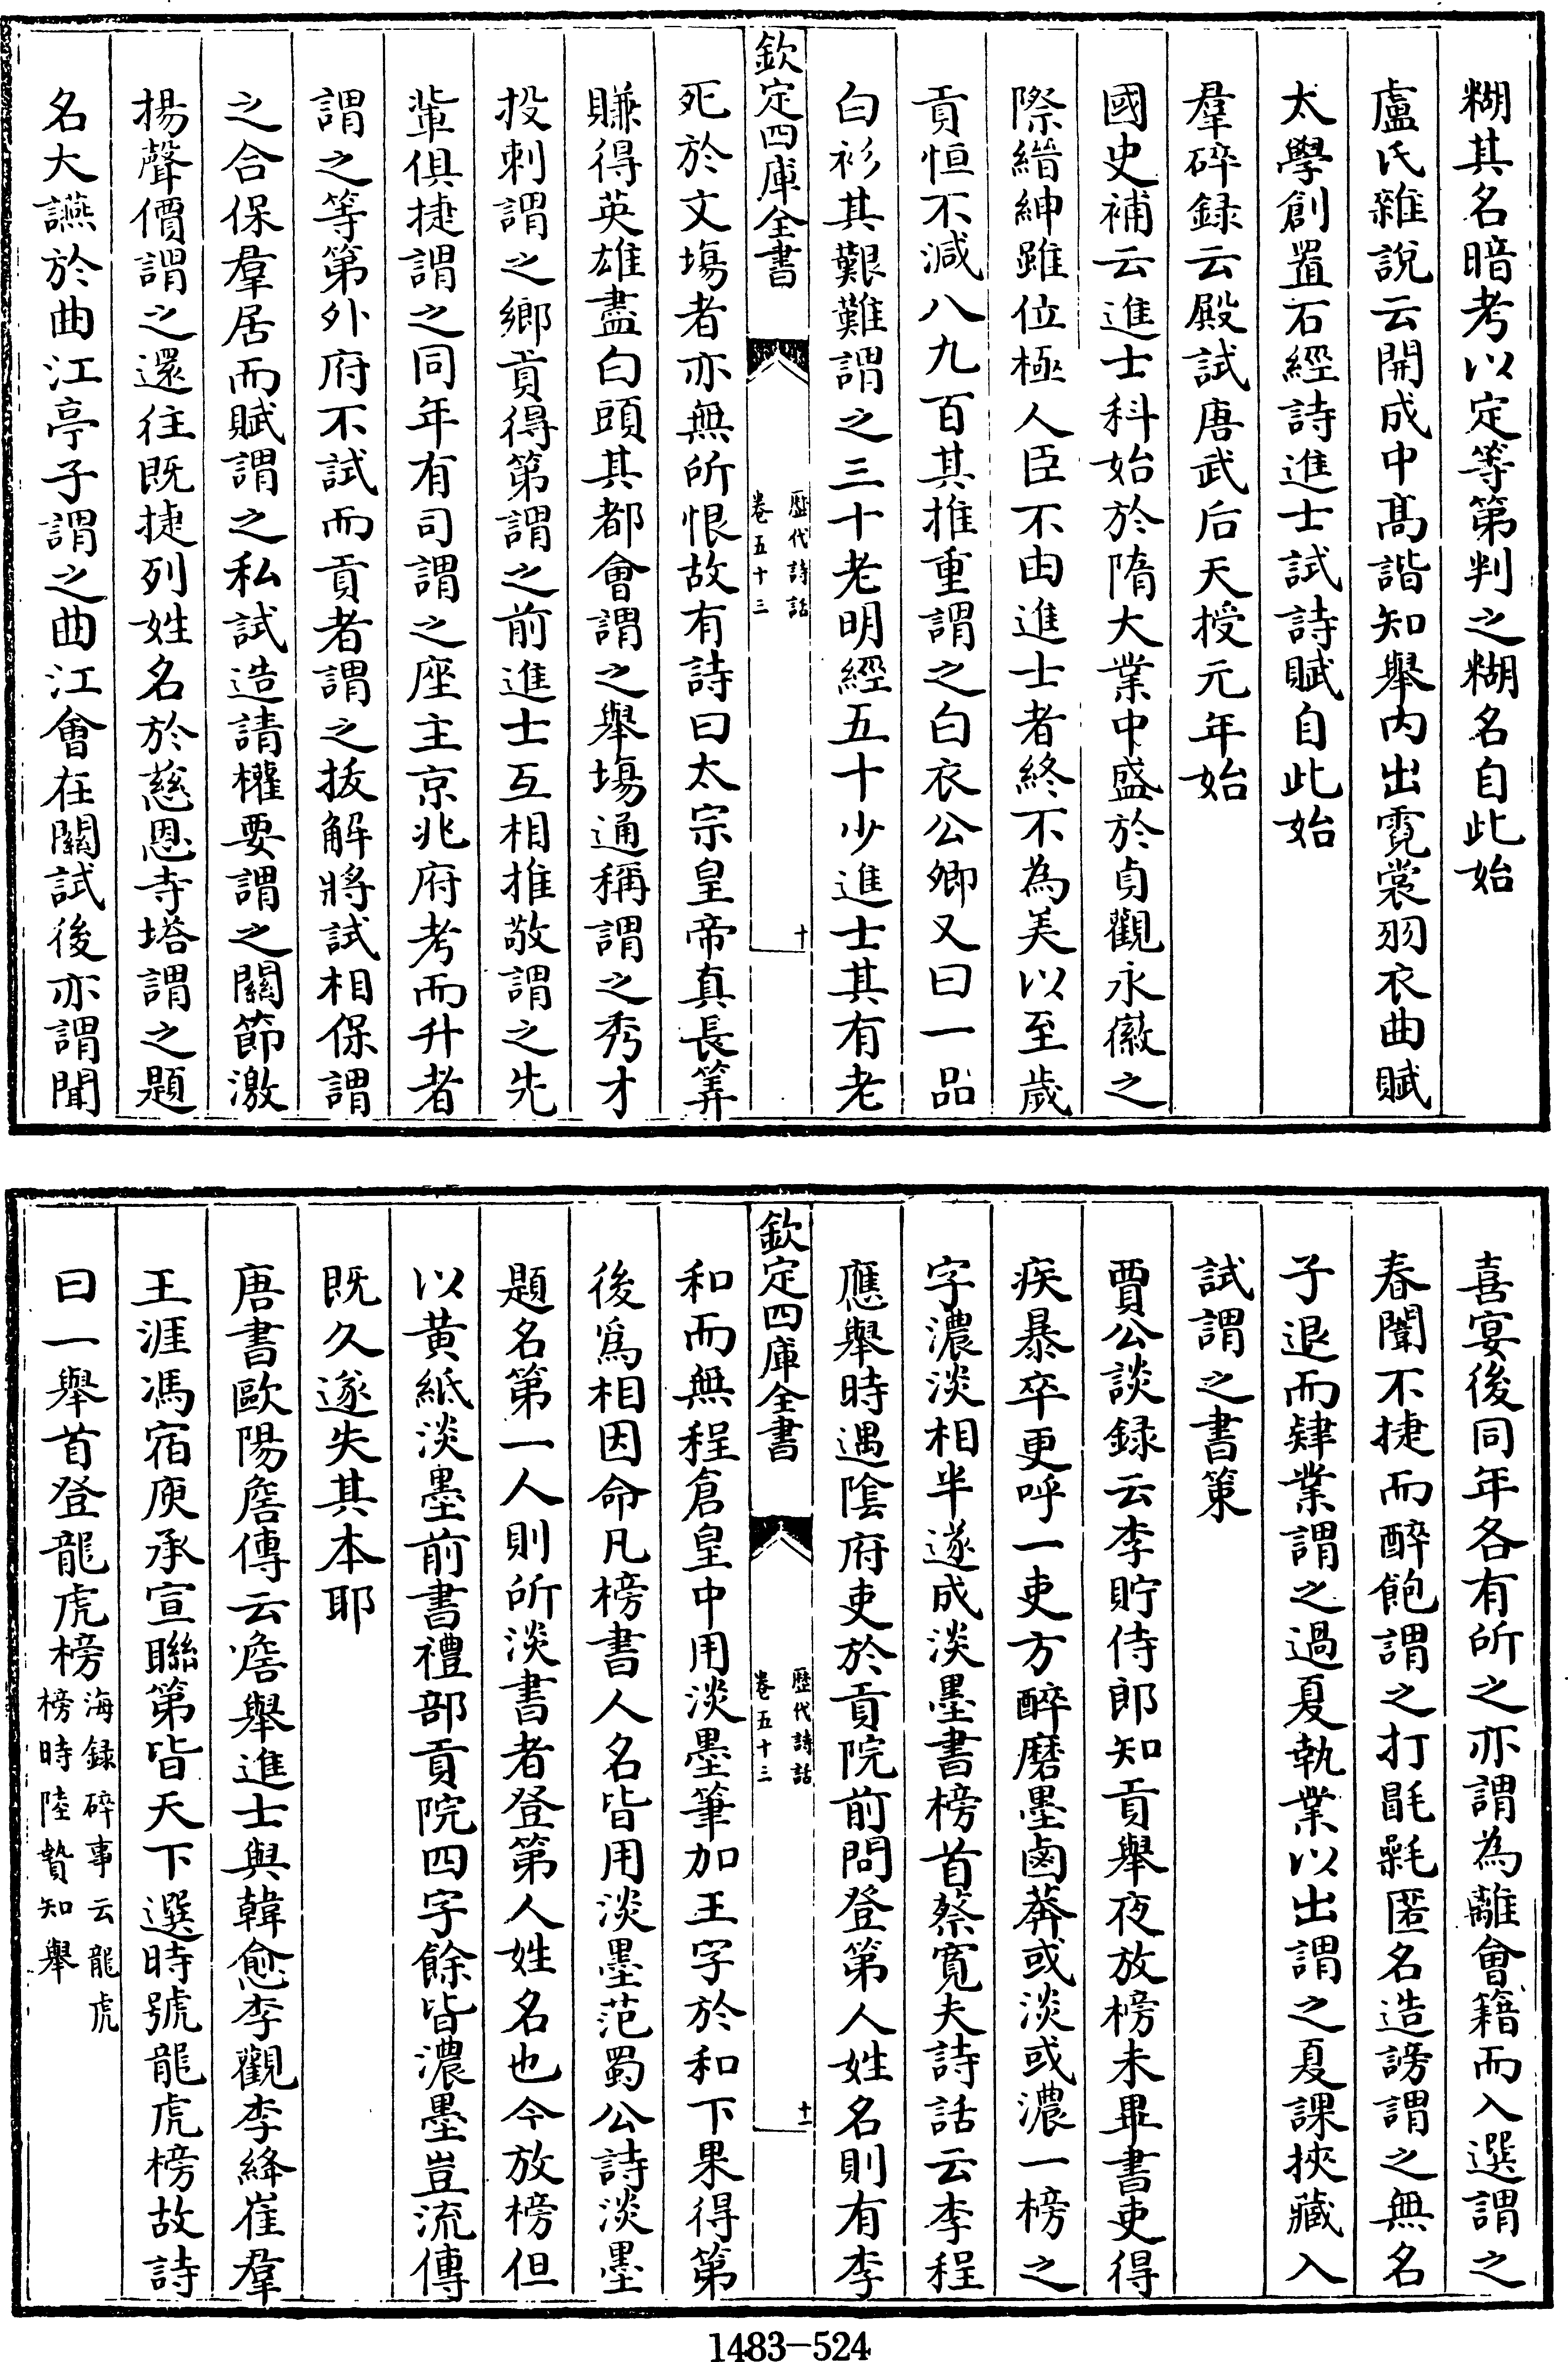 糊其名暗考以定等第判之糊名自此始
盧氏雜說云開成中髙諧知舉内出霓裳羽衣曲賦
太學創置石經詩進士試詩賦自此始
羣碎録云殿試唐武后天授元年始
國史補云進士科始於隋大業中盛於貞觀永徽之
際縉紳雖位極人臣不由進士者終不為美以至歲
貢恒不減八九百其推重謂之白衣公卿又曰一品
白衫其艱難謂之三十老明經五十少進士其有老
欽定四庫全書
歷代詩話
卷五十三
十
死於文塲者亦無所恨故有詩曰太宗皇帝真長筭
賺得英雄盡白頭其都會謂之舉塲通稱謂之秀才
投刺謂之鄉貢得第謂之前進士互相推敬謂之先
輩俱捷謂之同年有司謂之座主京兆府考而升者
謂之等第外府不試而貢者謂之拔解將試相保謂
之合保羣居而賦謂之私試造請權要謂之關節激
揚聲價謂之還往既捷列姓名於慈恩寺塔謂之題
名大讌於曲江亭子謂之曲江會在關試後亦謂聞
喜宴後同年各有所之亦謂為離會籍而入選謂之
春闈不捷而醉飽謂之打毷氉匿名造謗謂之無名
子退而肄業謂之過夏執業以出謂之夏課挾藏入
試謂之書策
賈公談録云李貯侍郎知貢舉夜放榜未畢書吏得
疾暴卒更呼一吏方醉磨墨鹵莽或淡或濃一榜之
字濃淡相半遂成淡墨書榜首蔡寛夫詩話云李程
應舉時遇隂府吏於貢院前問登第人姓名則有李
欽定四庫全書
歷代詩話
卷五十三
十一
和而無程倉皇中用淡墨筆加王字於和下果得第
後爲相因命凡榜書人名皆用淡墨范蜀公詩淡墨
題名第一人則所淡書者登第人姓名也今放榜但
以黄紙淡墨前書禮部貢院四字餘皆濃墨豈流傳
既久遂失其本耶
唐書歐陽詹傳云詹舉進士與韓愈李觀李絳崔羣
王涯馮宿庾承宣聯第皆天下選時號龍虎榜故詩
曰一舉首登龍虎榜海録碎事云龍虎
榜時陸贄知舉
1483-524